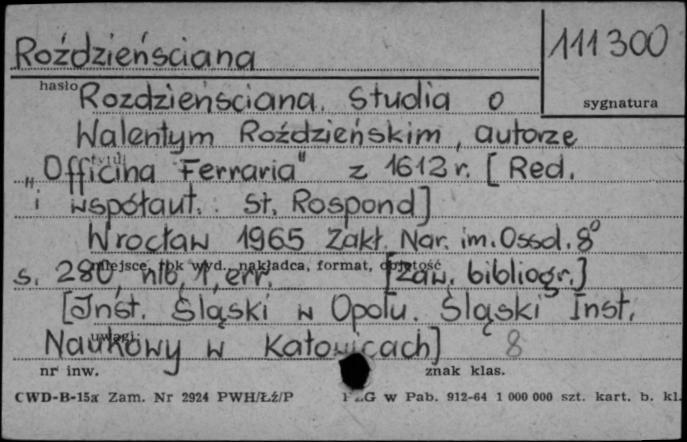 Roździeńsciana
111 300
hasło
sygnatura
Rozdzieńsciana. Studia o
Walentym Roździeńskim, autorze
tytuł
„Officina Ferraria" z 1612 r. [Red.
i współaut. : St. Rospond]
Wrocław 1965 Zakł. Nar. im. Ossol. 8°
miejsce, rok wyd., nakładca, format, objętość
s. 280, nlb, 1, err. [Zaw. bibliogr.]
[Inst. Śląski w Opolu. Śląski Inst.
uwagi
Naukowy w Katowicach] 8
nr inw.
znak klas.
CWD-B-15a Zam. Nr 2924 PWH/Łź/P
G w Pab. 912-64 1 000 000 szt. kart. b. kl.